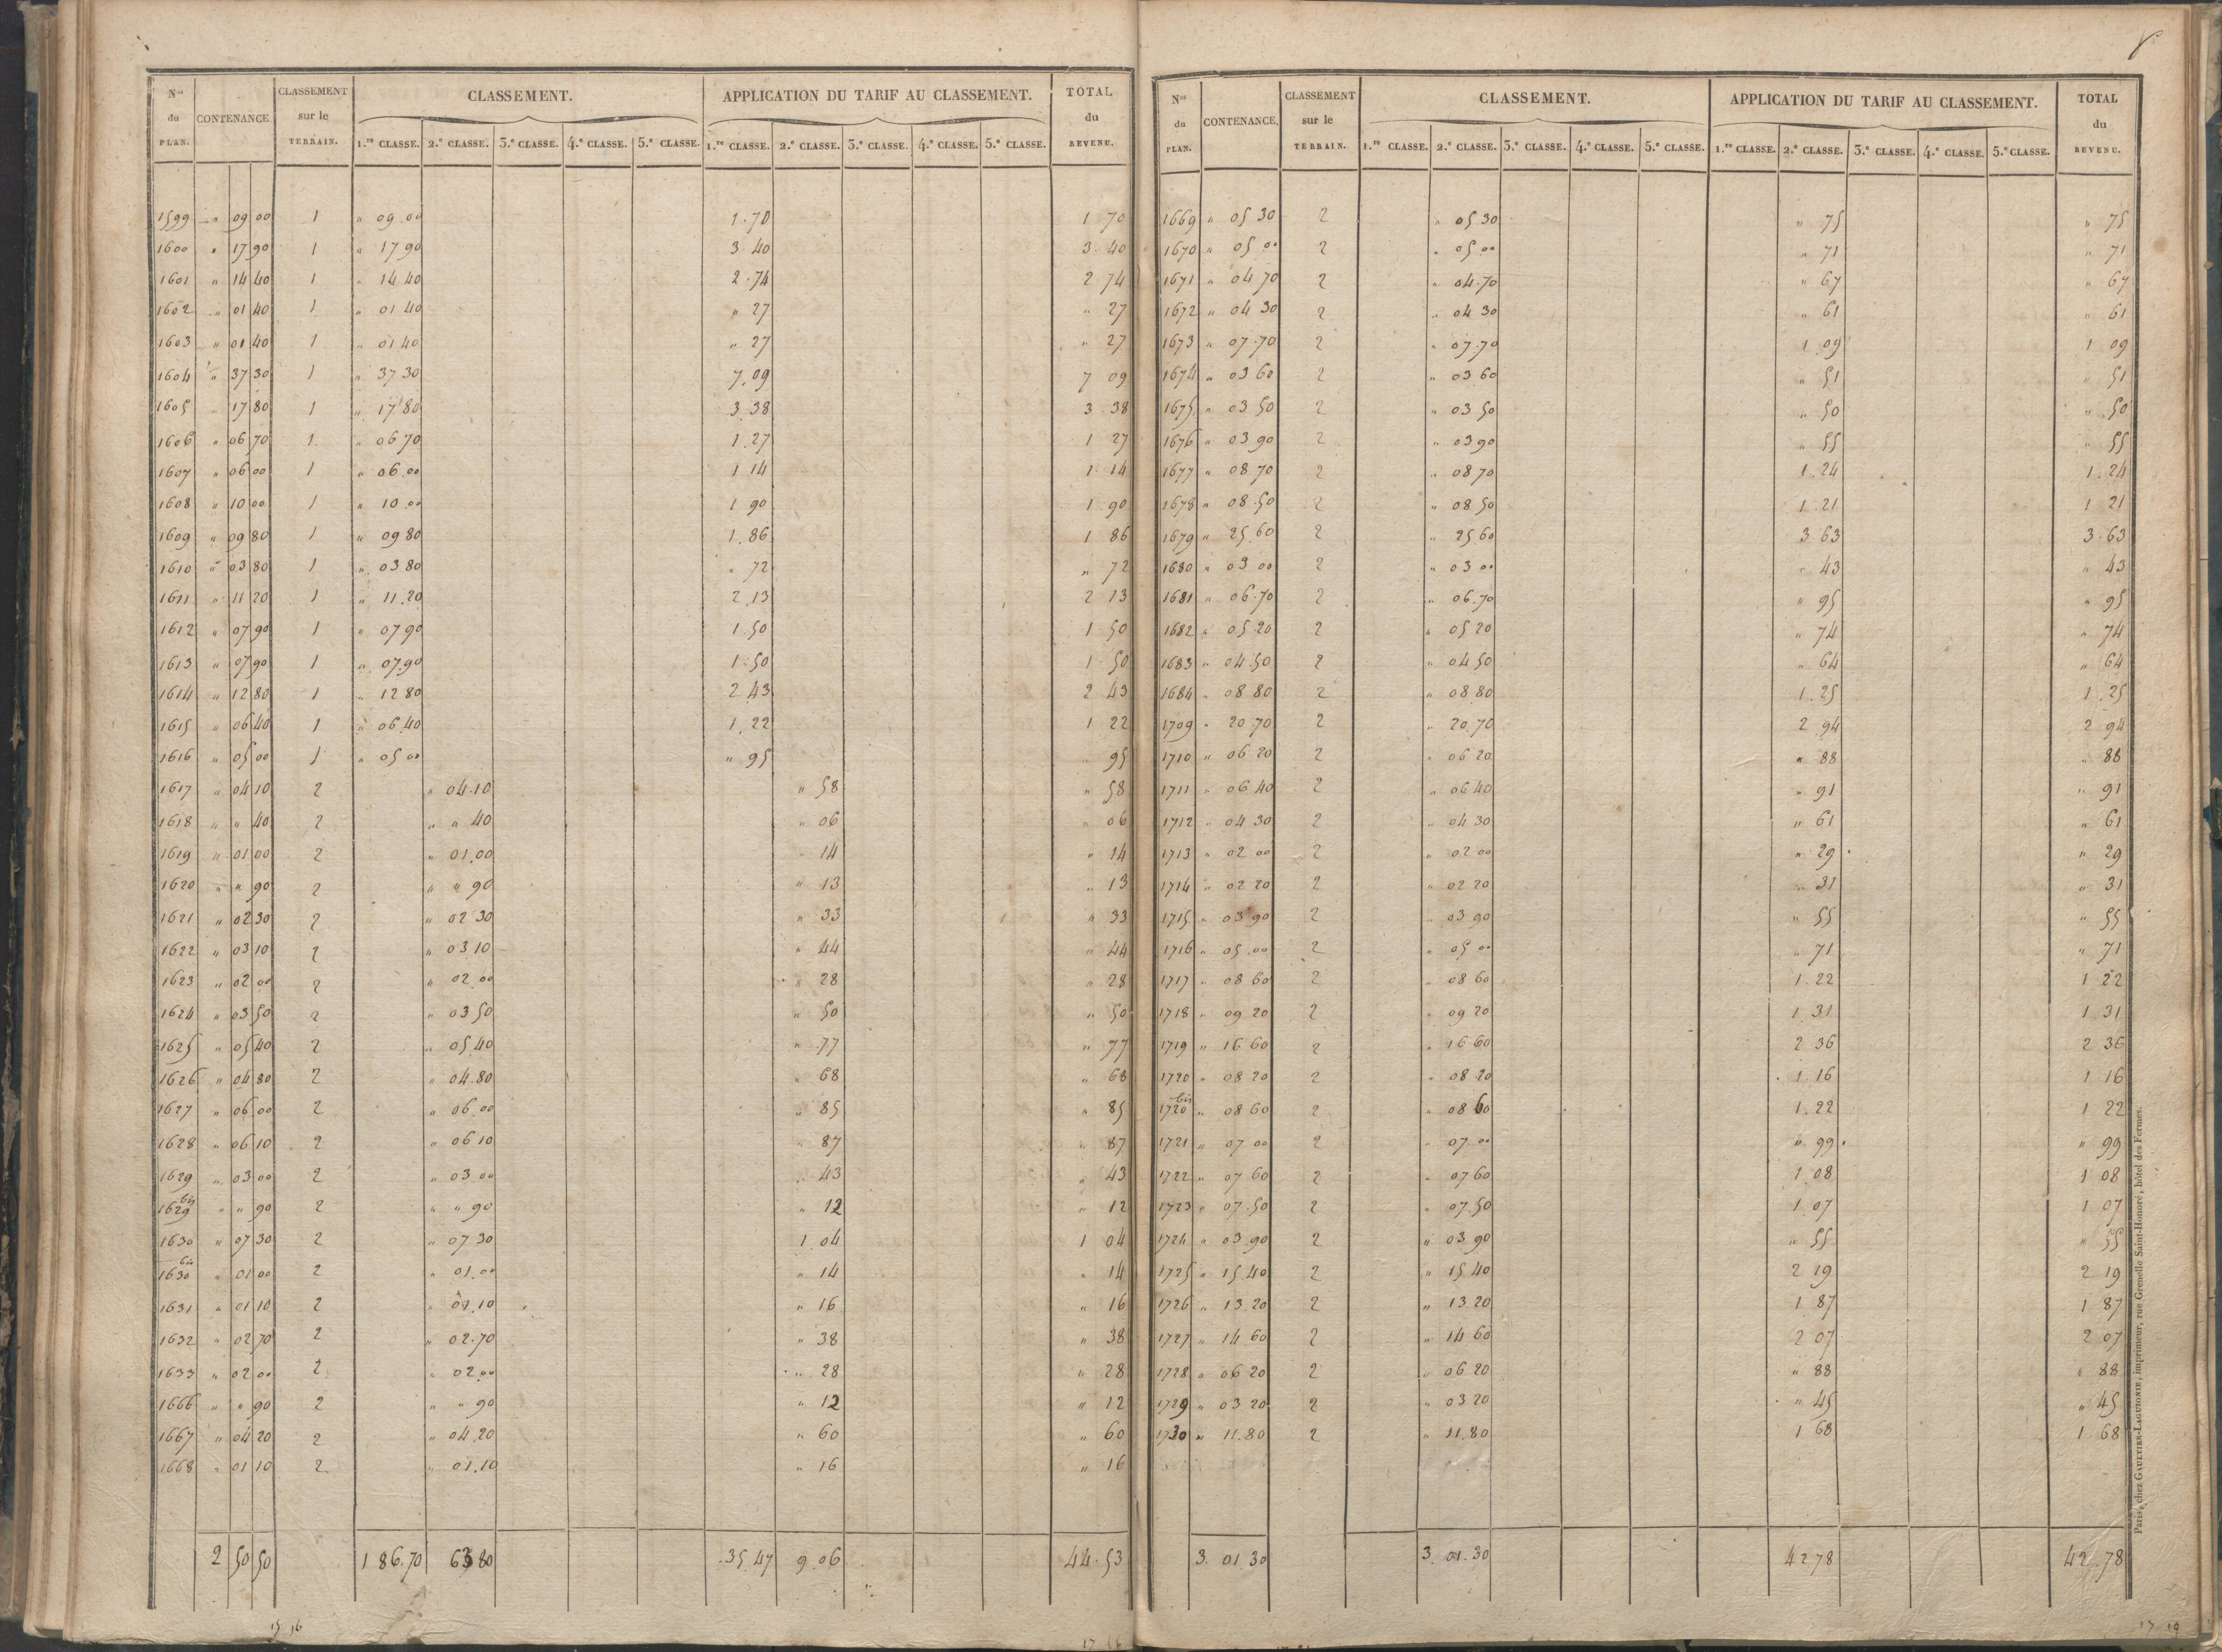 Nos du PLAN. CONTENANCE CLASSEMENT sur le TERRAIN. CLASSEMENT. APPLICATION DU TARIF AU CLASSEMENT. TOTAL du REVENU.
1.re CLASSE. 2.e CLASSE. 3.e CLASSE. 4.e CLASSE. 5.e CLASSE. 1.re CLASSE. 2.e CLASSE. 3.e CLASSE. 4.e CLASSE. 5.e CLASSE.
1599 " 09 00 1 " 09 00 1.70 1 70
1600 " 17 90 1 " 17 90 3 40 3.40
1601 " 14 40 1 " 14 40 2.74 2 74
1602 " 01 40 1 " 01 40 " 27 " 27
1603 " 01 40 1 " 01 40 " 27 " 27
1604 " 37 30 1 " 37 30 7.09 7 09
1605 " 17 80 1 " 17 80 3.38 3.38
1606 " 06 70 1 " 06 70 1.27 1 27
1607 " 06 00 1 " 06.00 1 14 1.14
1608 " 10 00 1 " 10.00 1 90 1 90
1609 " 09 80 1 " 09 80 1.86 1 86
1610 " 03 80 1 " 03 80 " 72 " 72
1611 " 11 20 1 " 11.20 2.13 2 13
1612 " 07 90 1 " 07 90 1.50 1 50
1613 " 07 90 1 " 07.90 1.50 1.50
1614 " 12 80 1 " 12 80 2 43 2 43
1615 " 06 40 1 " 06.40 1.22 1 22
1616 " 05 00 1 " 05 00 " 95 95
1617 " 04 10 2 " 04.10 " 58 " 58
1618 " " 40 2 " " 40 " 06 " 06
1619 " 01 00 2 " 01.00 " 14 " 14
1620 " " 90 2 " " 90 " 13 " 13
1621 " 02 30 2 " 02 30 " 33 " 33
1622 " 03 10 2 " 03 10 " 44 " 44
1623 " 02 00 2 " 02.00 " 28 " 28
1624 " 03 50 2 " 03 50 " 50 " 50
1625 " 05 40 2 " 05 40 " 77 " 77
1626 " 04 80 2 " 04.80 " 68 " 68
1627 " 06 00 2 " 06.00 " 85 " 85
1628 " 06 10 2 " 06 10 " 87 " 87
1629 " 03 00 2 " 03.00 " 43 " 43
1629 bis " " 90 2 " " 90 " 12 " 12
1630 " 07 30 2 " 07 30 1 04 1 04
1630 bis " 01 00 2 " 01.00 " 14 " 14
1631 " 01 10 2 " 01.10 " 16 " 16
1632 " 02 70 2 " 02.70 " 38 " 38
1633 " 02 00 2 " 02.00 " 28 " 28
1666 " " 90 2 " " 90 " 12 " 12
1667 " 04 20 2 " 04.20 " 60 " 60
1668 " 01 10 2 " 01.10 " 16 " 16
2 50 50 1 86.70 63 80 35.47 9.06 44.53
Nos du PLAN. CONTENANCE. CLASSEMENT sur le TERRAIN. CLASSEMENT. APPLICATION DU TARIF AU CLASSEMENT. TOTAL du REVENU.
1.re CLASSE. 2.e CLASSE. 3.e CLASSE. 4.e CLASSE. 5.e CLASSE. 1.re CLASSE. 2.e CLASSE. 3.e CLASSE. 4.e CLASSE. 5.e CLASSE.
1669 " 05 30 2 " 05 30 " 75 " 75
1670 " 05 00 2 " 05 00 " 71 " 71
1671 " 04 70 2 " 04.70 " 67 " 67
1672 " 04 30 2 " 04 30 " 61 " 61
1673 " 07.70 2 " 07.70 1.09 1 09
1674 " 03 60 2 " 03 60 " 51 " 51
1675 " 03 50 2 " 03 50 " 50 " 50
1676 " 03 90 2 " 03 90 " 55 " 55
1677 " 08 70 2 " 08 70 1.24 1.24
1678 " 08.50 2 " 08 50 1.21 1 21
1679 " 25.60 2 " 25 60 3 63 3.63
1680 " 03 00 2 " 03 00 " 43 " 43
1681 " 06.70 2 " 06.70 " 95 " 95
1682 " 05 20 2 " 05 20 " 74 " 74
1683 " 04.50 2 " 04 50 " 64 " 64
1684 " 08 80 2 " 08 80 1.25 1.25
1709 " 20 70 2 " 20.70 2 94 2 94
1710 " 06 20 2 " 06 20 " 88 " 88
1711 " 06 40 2 " 06 40 " 91 " 91
1712 " 04 30 2 " 04 30 " 61 " 61
1713 " 02 00 2 " 02 00 " 29 " 29
1714 " 02 20 2 " 02 20 " 31 " 31
1715 " 03 90 2 " 03 90 " 55 " 55
1716 " 05.00 2 " 05 00 " 71 " 71
1717 " 08 60 2 " 08 60 1.22 1 22
1718 " 09 20 2 " 09 20 1.31 1 31
1719 " 16 60 2 " 16 60 2 36 2 36
1720 " 08 20 2 " 08 20 1.16 1 16
1720 bis " 08 60 2 " 08 60 1.22 1 22
1721 " 07 00 2 " 07 00 " 99 " 99
1722 " 07 60 2 " 07 60 1 08 1 08
1723 " 07.50 2 " 07.50 1.07 1 07
1724 " 03.90 2 " 03 90 " 55 " 55
1725 " 15.40 2 " 15 40 2 19 2 19
1726 " 13.20 2 " 13 20 1 87 1 87
1727 " 14 60 2 " 14 60 2 07 2 07
1728 " 06 20 2 " 06 20 " 88 " 88
1729 " 03 20 2 " 03 20 " 45 " 45
1730 " 11.80 2 " 11.80 1 68 1 68
3. 01.30 3. 01.30 42 78 42.78
Paris, chez GAULTIER-LAGUIONIE, imprimeur, rue Grenelle Saint-Honoré, hôtel des Fermes.